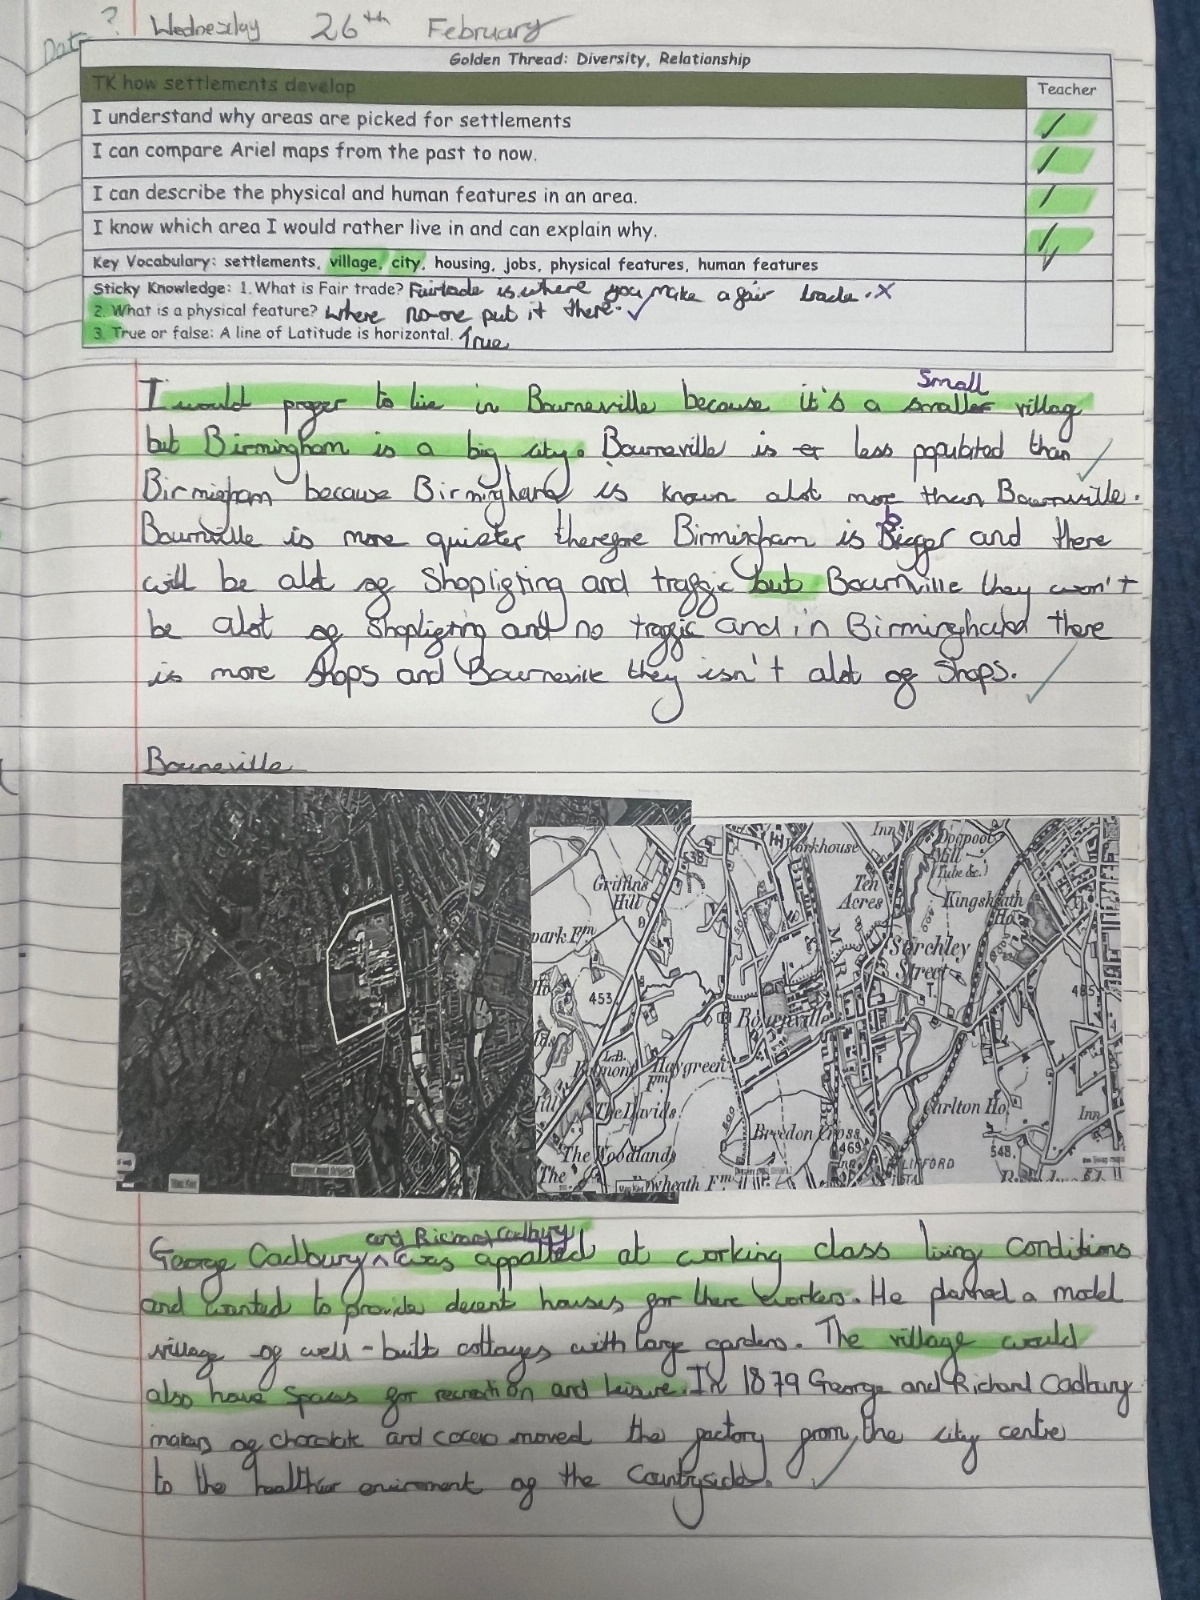 Date ? Wednesday 26th February
Golden Thread: Diversity, Relationship
TK how settlements develop
Teacher
I understand why areas are picked for settlements
I can compare Ariel maps from the past to now.
I can describe the physical and human features in an area.
I know which area I would rather live in and can explain why.
Key Vocabulary: settlements, village, city, housing, jobs, physical features, human features
Sticky Knowledge: 1. What is Fair trade? Fairtade is where you make a fair trade. x
2. What is a physical feature? Where no-one put it there.
3. True or false: A line of Latitude is horizontal. True
small
I would prefer to live in Bourneville because it's a smaller village
but Birmingham is a big city. Bourneville is er less populated than
Birmigham because Birmingham is known alot more than Bournville.
Bournville is more quieter therefore Birmingham is Bigger and there
will be alot of Shoplifting and traffic but Bournville they won't
be alot of Shoplifting and no traffic and in Birmingham there
is more shops and Bournevile they isn't alot of Shops.
Bourneville
Workhouse
Inn
Dogpool
Mill
(Tube &c.)
Griffins
Hill
538
Ten
Acres
Kingsheath
Ho.
park Fm
Stirchley
Street
453
485
Bournville
L.B.
Haygreen
Fm
The Davids
Carlton Ho.
Inn
Breedon Cross
The Woodlands
469
548
The
LIFFORD
wheath Fm
and Richard Cadbury
George Cadbury ^ was appalled at working class living conditions
and wanted to provide decent houses for there workers. He planned a model
village of well-built cottages with large gardens. The village would
also have spaces for recreation and leisure. In 1879 George and Richard Cadbury
makers of chocolate and cocoa moved the factory from the city centre
to the healthier enviroment of the Countryside.